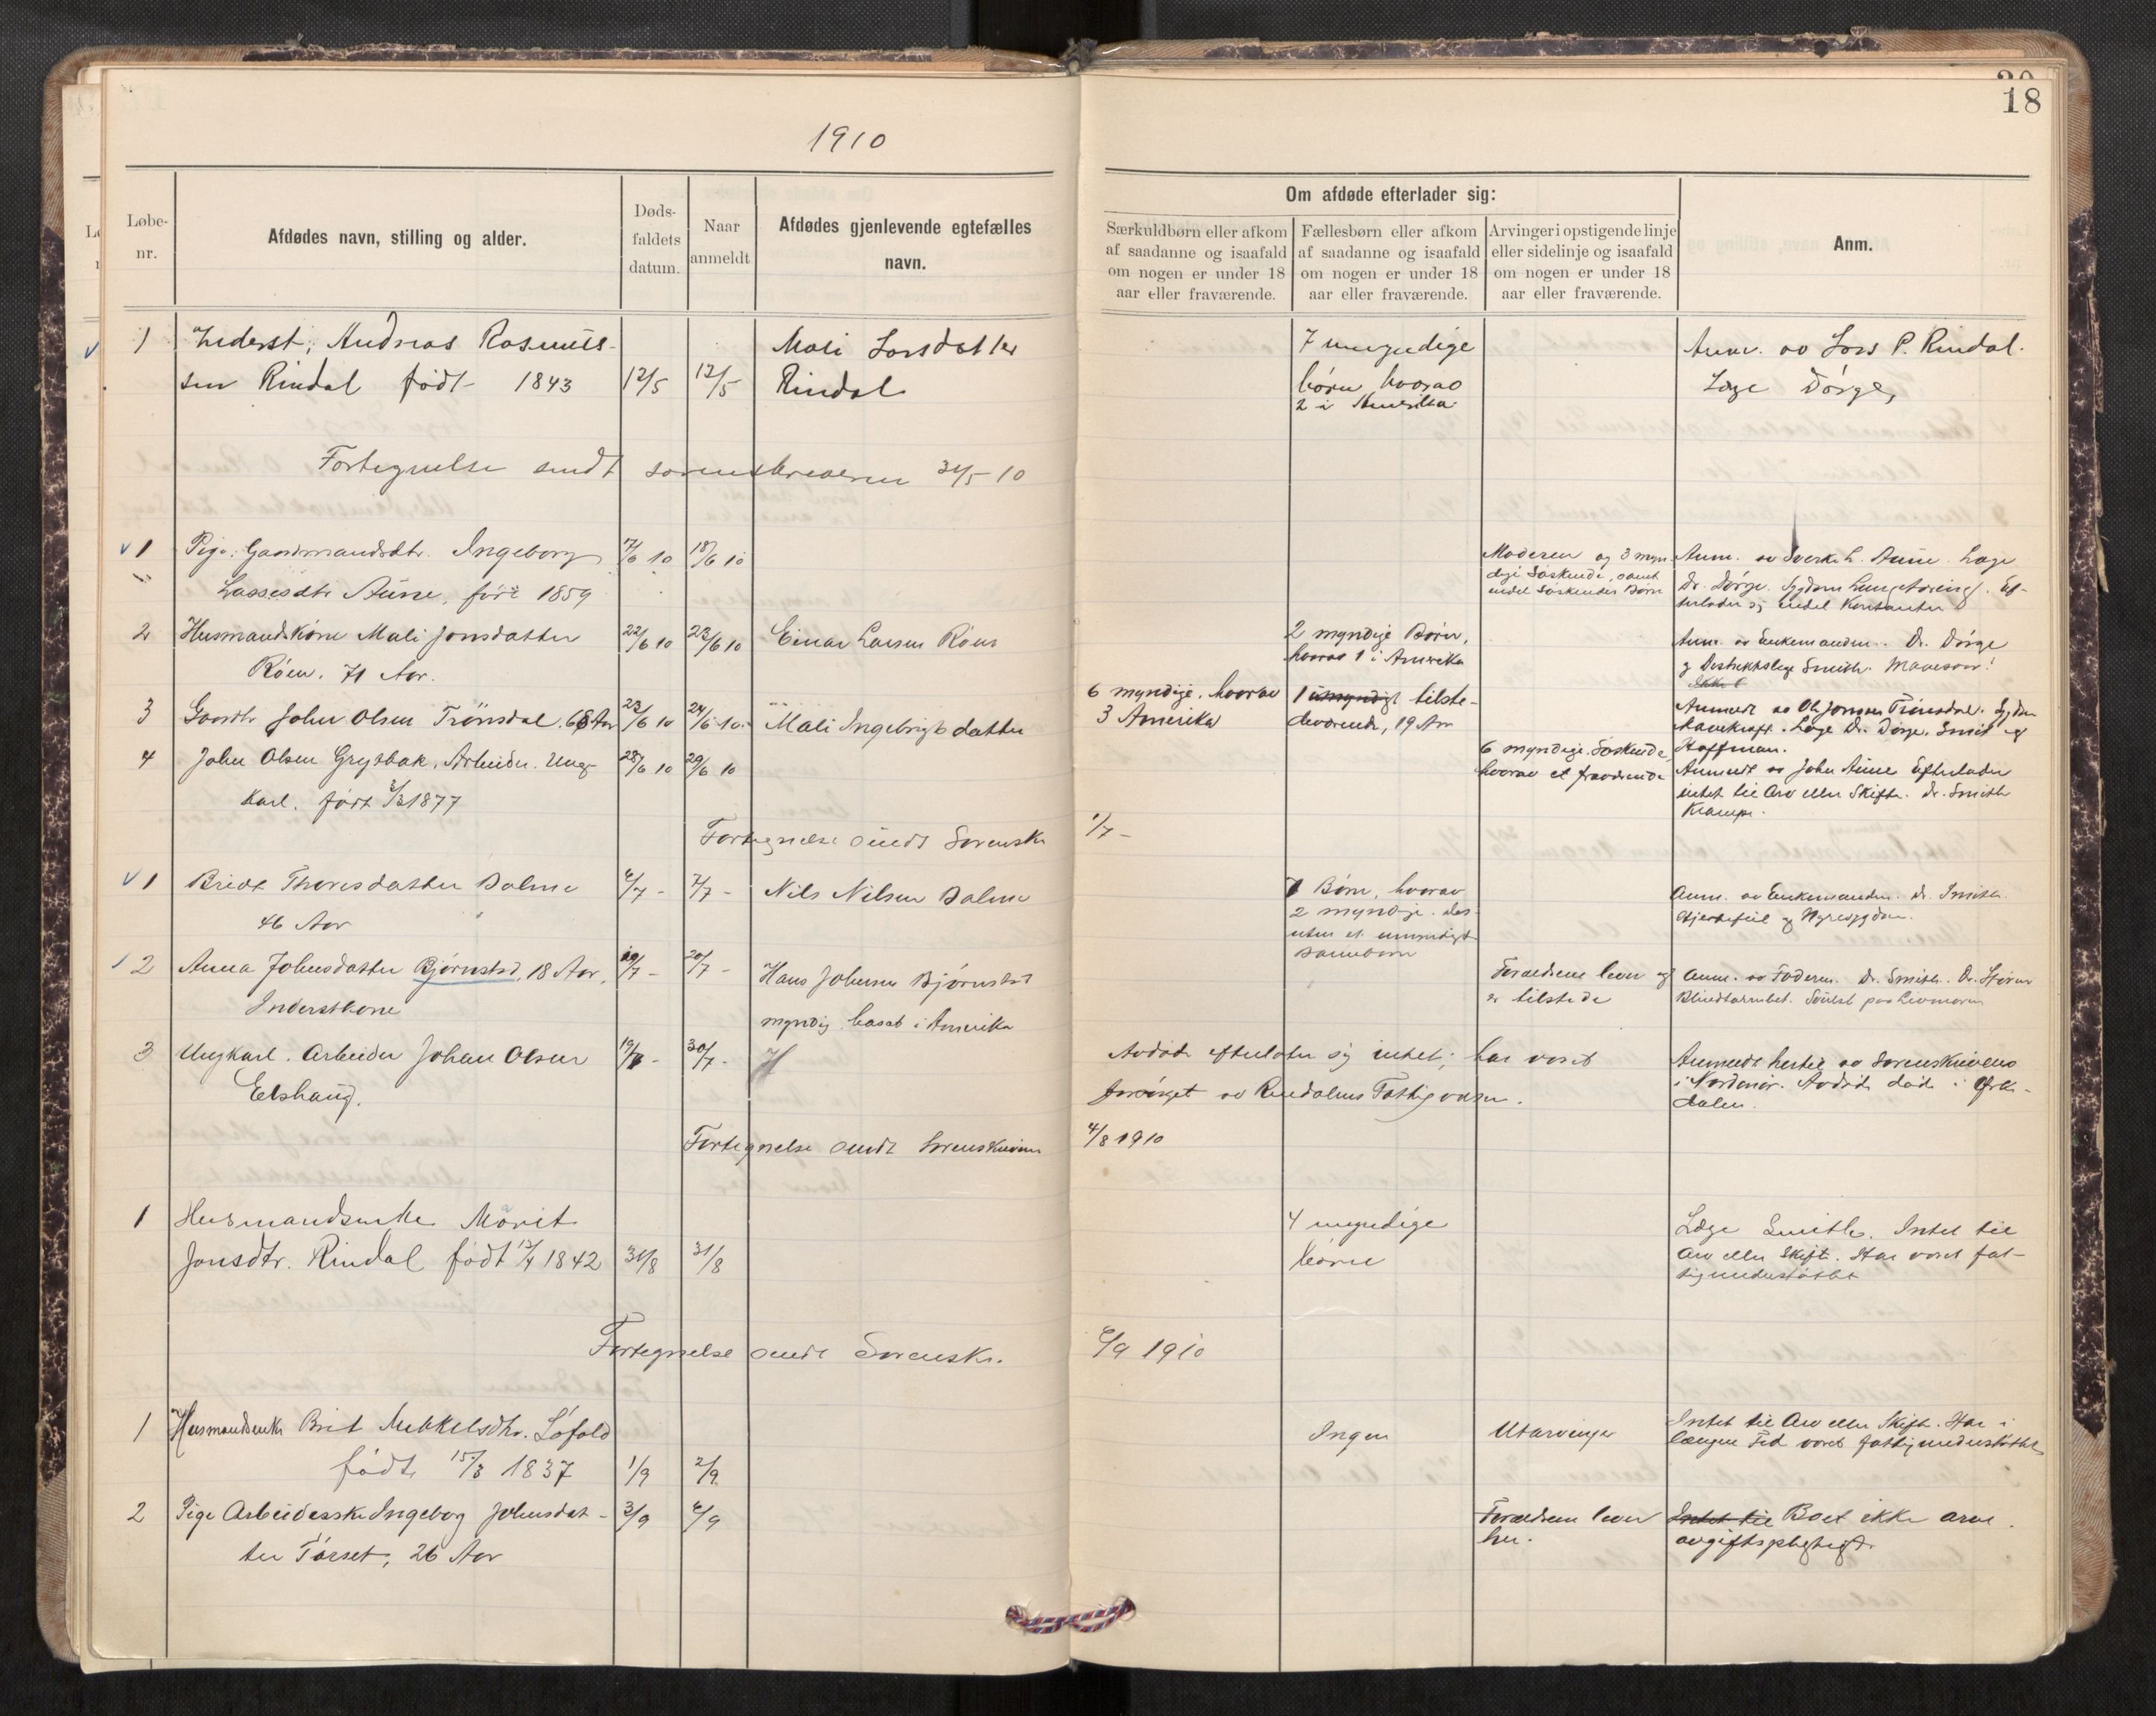 1910
18
Løbe-nr.
Afdødes navn, stilling og alder.
Døds-faldets datum.
Naar anmeldt
Afdødes gjenlevende egtefælles navn.
Om afdøde efterlader sig:
Særkuldbørn eller afkom af saadanne og isaafald om nogen er under 18 aar eller fraværende.
Fællesbørn eller afkom af saadanne og isaafald om nogen er under 18 aar eller fraværende.
Arvinger i opstigende linje eller sidelinje og isaafald om nogen er under 18 aar eller fraværende.
Anm.
1 Inderst, Andreas Rasmus- Mali Larsdatter 7 myndige Anm. av Lars P. Rindal.
sen Rindal født 1843 12/5 12/5 Rindal børn, hvorav Læge Dørge,
2 i Amerika
Fortegnelse sendt sorenskriveren 31/5 10
1 Pige. Gaardmandsdtr. Ingeborg 17/6 10 18/6 10 Moderen og 3 myn- Anm. av Sverke L. Aune. Læge
Lassesdtr Aune, født 1859 dige Søskende, samt Dr. Dørge. Sygdom Lungetæring. Ef-
endel Søskendes Børn terlader sig endel Kontanter
2 Husmandskone Mali Jonsdatter 22/6 10 23/6 10 Einar Larsen Røen 2 myndige Børn, Anm. av Enkemanden. Dr. Dørge
Røen. 71 Aar. hvorav 1 i Amerika og Distriktslæge Smith. Mavesaar.
3 Gaardbr John Olsen Trønsdal. 68 Aar 23/6 10 24/6 10. Mali Ingebrigtsdatter 6 myndige. hvorav 1 umyndigt tilste- Anmeldt av Ole Jonsen Trønsdal. Sygdom
3 Amerika deværende, 19 Aar Mavekræft. Læge Dr. Dørge, Smith og
Hoffman.
4 John Olsen Grytbak, Arbeider. Ung- 28/6 10 29/6 10 6 myndige Søskende, Anmeldt av John Aune Efterlader
karl. født 2/3 1877 hvorav et fraværende intet til Arv eller Skifte. Dr. Smith
Krampe.
Fortegnelse sendt Sorenskr 1/7 -
1 Bridt Thoresdatter Dalme 6/7 - 7/7 - Nils Nilsen Dalme 7 Børn, hvorav Anm. av Enkemanden. Dr. Smith.
46 Aar 2 myndige. des- Hjertefeil og Nyresygdom.
uten et umyndigt
Barnebarn
2 Anna Johnsdatter Bjørnstad, 18 Aar, 19/7 - 20/7 - Hans Johnsen Bjørnstad Forældrene lever og Anm. av Faderen. Dr. Smith. Dr.
Inderstkone myndig, bosat i Amerika er tilstede Blindtarmbet. Svulst paa Livmoren
3 Ungkarl. Arbeider Johan Olsen 19/7 - 30/7 - Avdøde efterlater sig intet; har været Anmeldt hertil av Sorenskriveren
Elshaug. forsørget av Rindalens Fattigvæsen. i Nordmør. Avdøde døde i Ork-
dalen.
Fortegnelse sendt Sorenskriveren 4/8 1910
1 Husmandsenke Marit 4 myndige Læge Smith. Intet til
Jonsdtr. Rindal født 12/4 1842 31/8 31/8 børn Arv eller Skifte. Har været fat-
tigunderstøttet
Fortegnelse sendt Sorenskr. 6/9 1910
1 Husmandsenke Brit Mikkelsdtr. Løfald Ingen Utarvinger Intet til Arv eller Skifte. Har i
født 15/3 1837 1/9 2/9 længere Tid været fattigunderstøttet
2 Pige Arbeiderske Ingeborg Johnsdat- 3/9 6/9 Forældrene lever Intet til Boet ikke arve
ter Tørset, 26 Aar her. avgiftspligtigt.